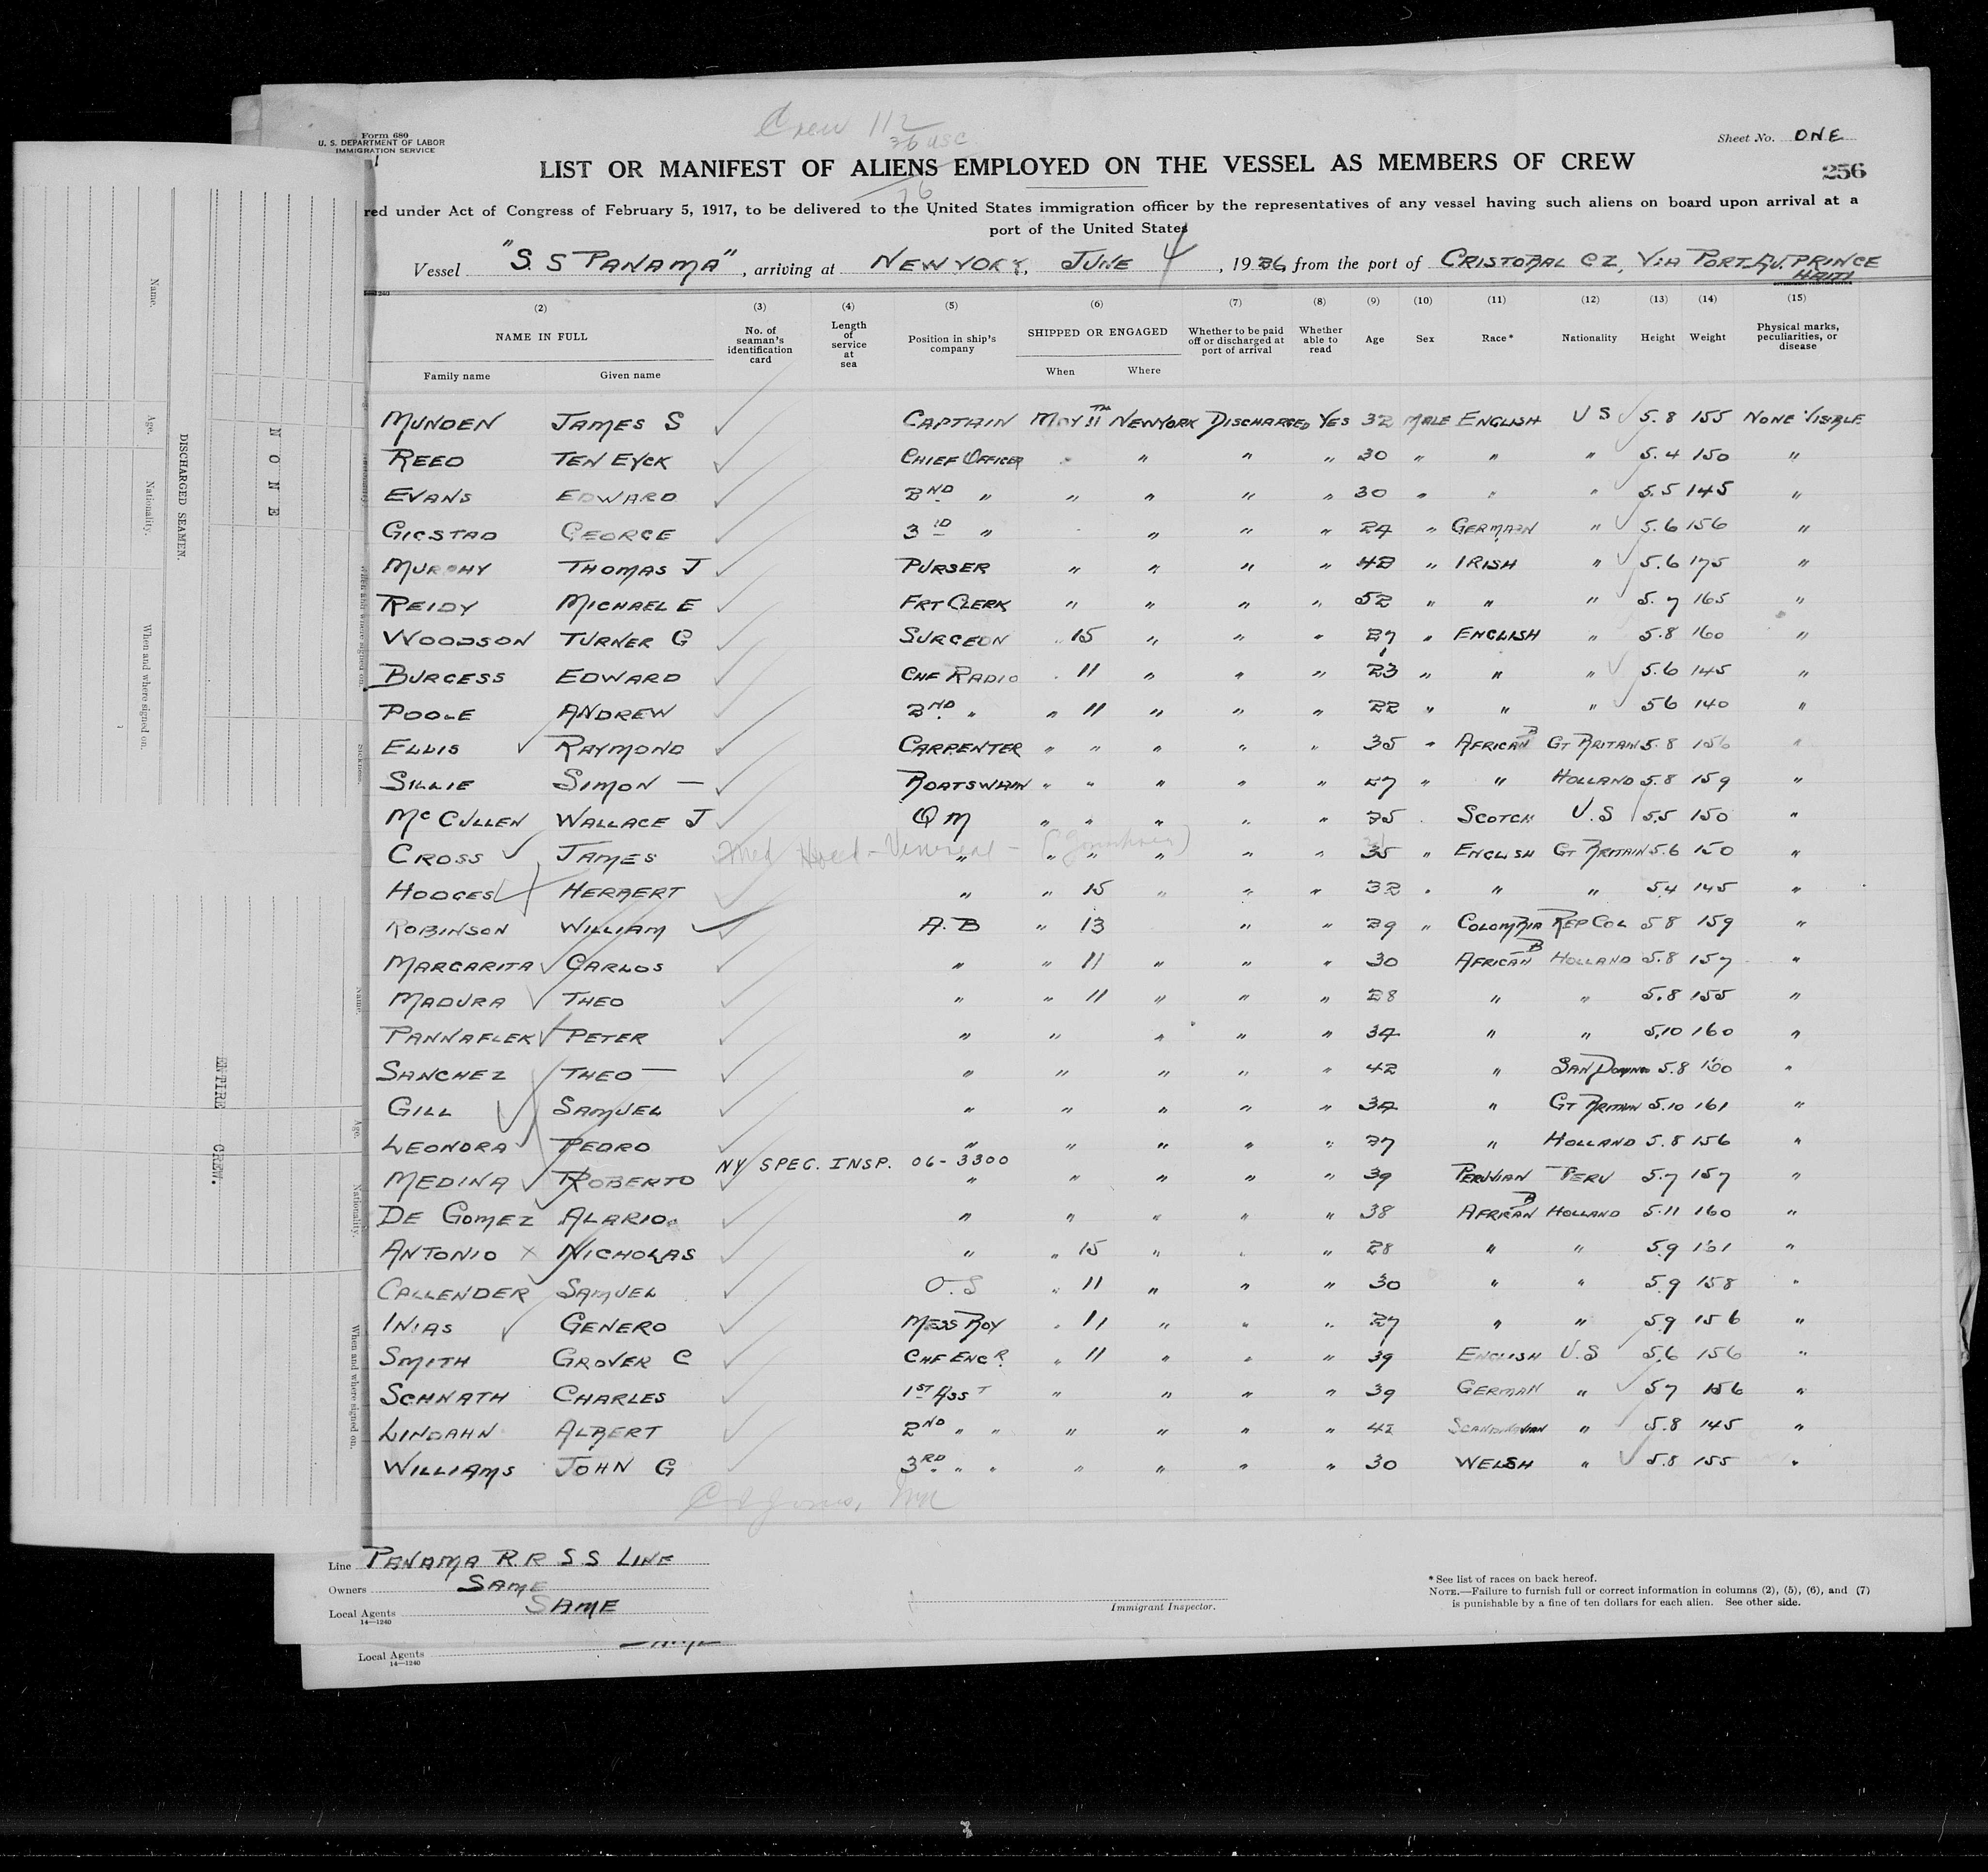 Crew 112
36 USC
76
Form 680
U. S. DEPARTMENT OF LABOR
IMMIGRATION SERVICE
Sheet No. ONE
256
LIST OR MANIFEST OF ALIENS EMPLOYED ON THE VESSEL AS MEMBERS OF CREW
red under Act of Congress of February 5, 1917, to be delivered to the United States immigration officer by the representatives of any vessel having such aliens on board upon arrival at a
port of the United States
Vessel "S. S PANAMA", arriving at NEW YORK, JUNE 4, 1926, from the port of CRISTOBAL CZ, VIA PORT AU. PRINCE
HAITI
(2) (3) (4) (5) (6) (7) (8) (9) (10) (11) (12) (13) (14) (15)
NAME IN FULL No. of seaman's identification card Length of service at sea Position in ship's company SHIPPED OR ENGAGED Whether to be paid off or discharged at port of arrival Whether able to read Age Sex Race* Nationality Height Weight Physical marks, peculiarities, or disease
Family name Given name When Where
MUNDEN JAMES S CAPTAIN MAY 11TH NEW YORK DISCHARGED YES 32 MALE ENGLISH U S 5.8 155 NONE VISIBLE
REED TEN EYCK CHIEF OFFICER " " " 30 " " " 5.4 150 "
EVANS EDWARD 2ND " " " " " 30 " " " 5.5 145 "
GIGSTAD GEORGE 3RD " " " " 24 " GERMAN " 5.6 156 "
MURPHY THOMAS J PURSER " " " " 42 " IRISH " 5.6 175 "
REIDY MICHAEL E FRT CLERK " " " " 52 " " " 5.7 165 "
WOODSON TURNER G SURGEON 15 " " " 27 " ENGLISH " 5.8 160 "
BURGESS EDWARD CHF RADIO 11 " " " 23 " " " 5.6 145 "
POOLE ANDREW 2ND " " 11 " " " 22 " " " 56 140 "
ELLIS RAYMOND CARPENTER " " " " " 35 " AFRICAN B GT BRITAIN 5.8 156 "
SILLIE SIMON — BOATSWAIN " " " " " 27 " " HOLLAND 5.8 159 "
MCCULLEN WALLACE J Q M " " " " " 35 SCOTCH U.S 5.5 150 "
CROSS JAMES " " " " " " 35 " ENGLISH GT BRITAIN 5.6 150 "
HODGES HERBERT " " 15 " " " 32 " " " 5.4 145 "
ROBINSON WILLIAM A.B " 13 " " 29 " COLOMBIA REP COL 5 8 159 "
MARGARITA CARLOS " " 11 " " " 30 AFRICAN B HOLLAND 5.8 157 "
MADURA THEO " " 11 " " " 28 " " 5.8 155 "
PANNAFLEK PETER " " " " " 34 " " 5.10 160 "
SANCHEZ THEO — " " " " " 42 " SAN DOMNGO 5.8 160 "
GILL SAMUEL " " " " " 34 " GT BRITAIN 5.10 161 "
LEONORA PEDRO " " " " " 27 " HOLLAND 5.8 156 "
NY SPEC. INSP. 06-3300
MEDINA ROBERTO " " " " " 39 PERUVIAN PERU 5.7 157 "
DE GOMEZ ALARIO " " " " " 38 AFRICAN B HOLLAND 5.11 160 "
ANTONIO NICHOLAS " " 15 " " " 28 " " 5.9 161 "
CALLENDER SAMUEL O.S " 11 " " " 30 " " 5.9 158 "
INIAS GENERO MESS BOY " 11 " " " 27 " " 5.9 156 "
SMITH GROVER C CHF ENGR. " 11 " " " 39 ENGLISH U.S 5.6 156 "
SCHNATH CHARLES 1ST ASST " " " " 39 GERMAN " 5 7 156 "
LINDAHN ALBERT 2ND " " " " " " 42 SCANDINAVIAN " 5.8 145 "
WILLIAMS JOHN G 3RD " " " " " " 30 WELSH " 5.8 155 "
Line PANAMA R R S.S LINE
Owners SAME
Local Agents SAME
14—1240
Immigrant Inspector.
*See list of races on back hereof.
NOTE.—Failure to furnish full or correct information in columns (2), (5), (6), and (7)
is punishable by a fine of ten dollars for each alien. See other side.
Local Agents
14—1240
DISCHARGED SEAMEN.
Name. Age. Nationality. When and where signed on.
NONE
Name. Age. Nationality. When and where signed on.
ENTIRE CREW.